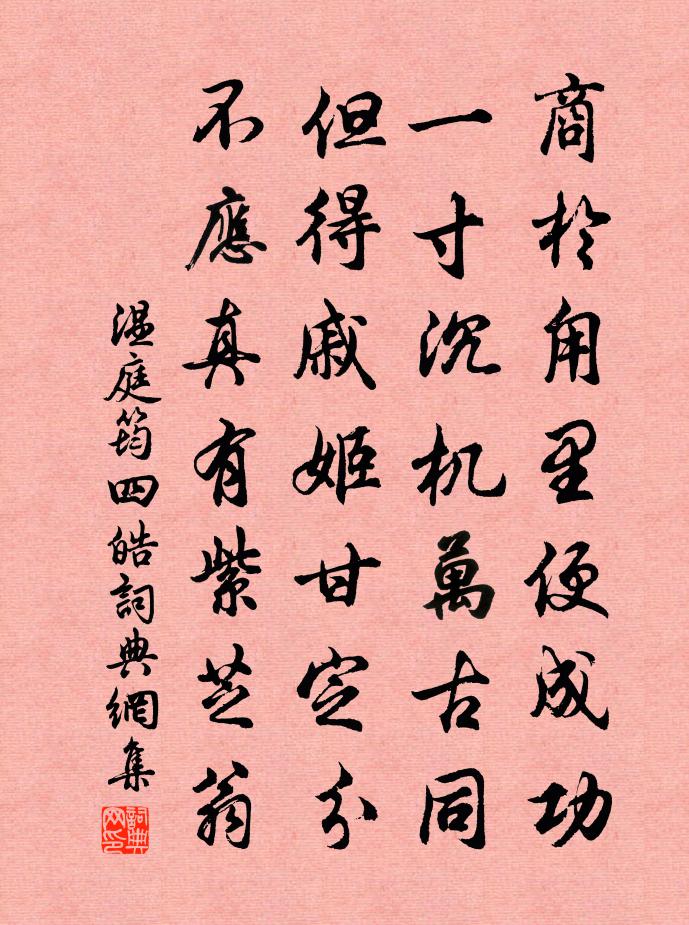 商於角里便成功
一寸沉机萬古同
但得戚姬甘定分
不應真有紫芝翁
温庭筠四皓詞典網集
詞典网印